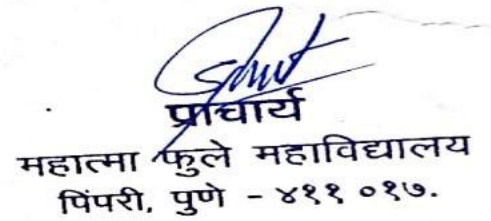 प्राचार्य
महात्मा फुले महाविद्यालय
पिंपरी, पुणे - ४११ ०१७.